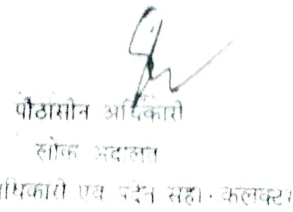 पीठासीन अधिकारी
लोक अदालत
धिकारी एवं पदेन सहा. कलक्टर